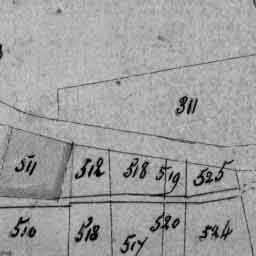 311
511 512 518 519 525
510 518 517 520 524